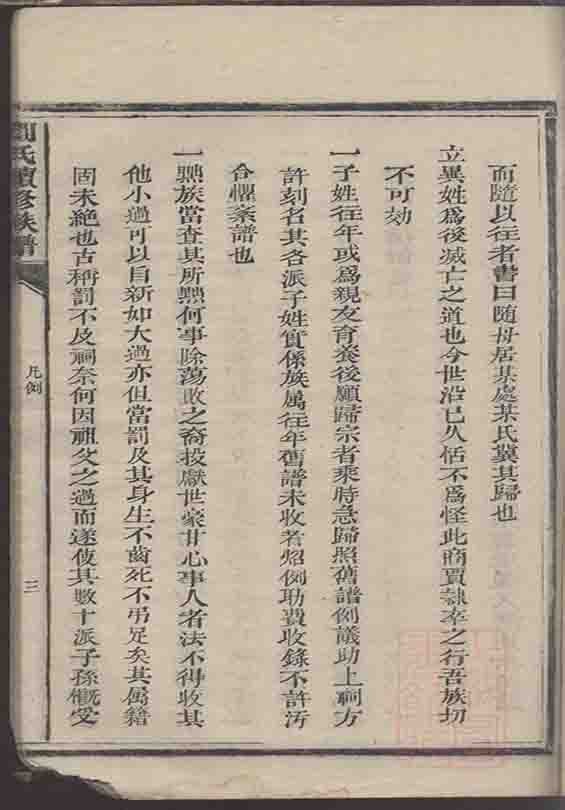 而隨以往者書曰随母居某處某氏冀其歸也
立異姓爲後滅亡之道也今世沿已久恬不爲怪此商賈隷卒之行吾族切
不可効
一子姓往年或爲親友育養後願歸宗者乘時急歸照舊譜例議助上祠方
許刻名其各派子姓實係族属往年舊譜未收者炤例助費收錄不許汚
合懼紊譜也
一黜族當查其所黜何事除蕩敗之裔投獻世豪甘心事人者法不得收其
他小過可以自新如大過亦但當罰及其身生不齒死不弔足矣其属籍
固未絶也古稱罰不及嗣奈何因祖父之過而遂使其數十派子孫槪受
氏續修族譜
凡例
三